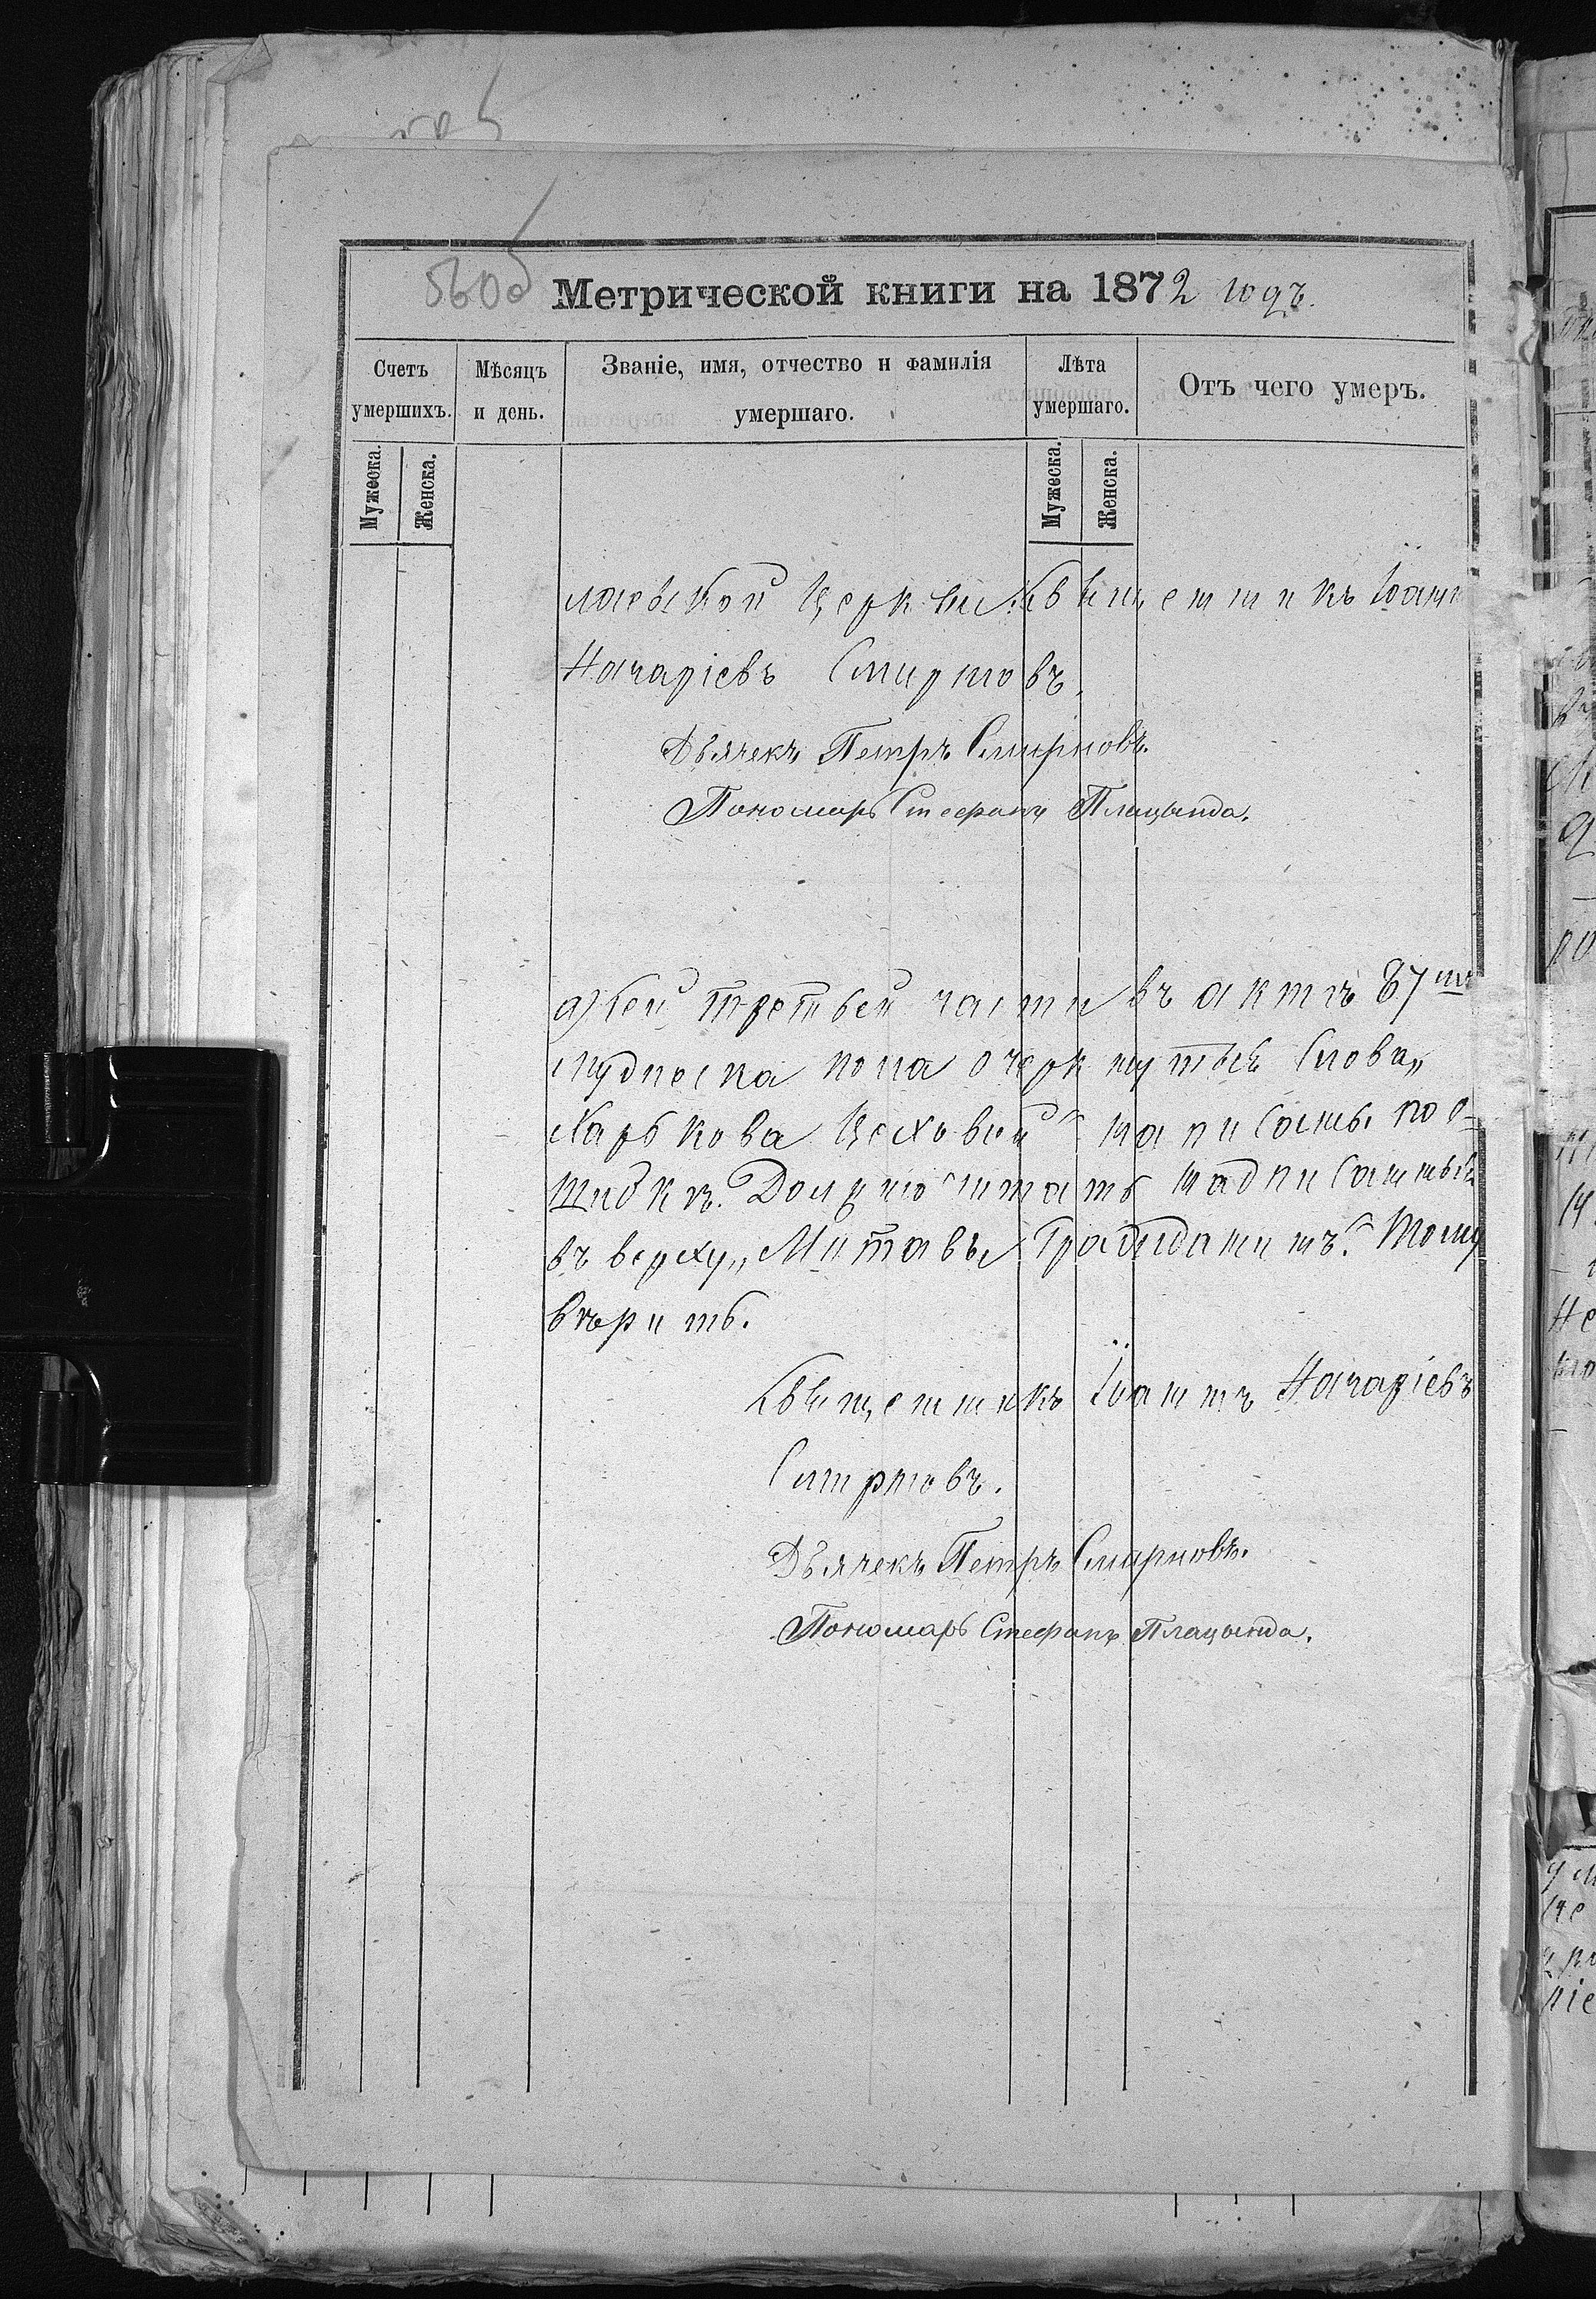 560об
Метрической книги на 1872 годъ.
Счетъ умершихъ.
Мѣсяцъ и день.
Званіе, имя, отчество и фамилія умершаго.
Лѣта умершаго.
Отъ чего умеръ.
Мужеска.
Женска.
Мужеска.
Женска.
лаевской Церкви Священникъ Іоанн
Начаріевъ Смирновъ.
Дьячекъ Петръ Смирновъ.
Пономарь Стефанъ Плацында.
а) Сей третьей части въ актѣ 87мъ
мужеска пола очеркнутыя слова „
Харькова Цеховый“ написаны по о-
шибкѣ. Должно читать надписанныя
въ верху „Митавы Гражданинъ.“ Тому
вѣрить.
Священникъ Іоаннъ Начаріевъ
Смирновъ.
Дьячекъ Петръ Смирновъ.
Пономарь Стефанъ Плацында.